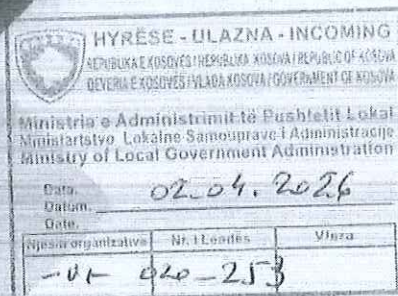 HYRËSE - ULAZNA - INCOMING
REPUBLIKA E KOSOVËS / REPUBLIKA KOSOVA / REPUBLIC OF KOSOVA
QEVERIA E KOSOVËS / VLADA KOSOVA / GOVERNMENT OF KOSOVA
Ministria e Administrimit të Pushtetit Lokal
Ministarstvo Lokalne Samouprave i Administracije
Ministry of Local Government Administration
Data.
Datum. 02.04.2026
Date.
Njesia organizative Nr. i Lendës Vlera
020-253